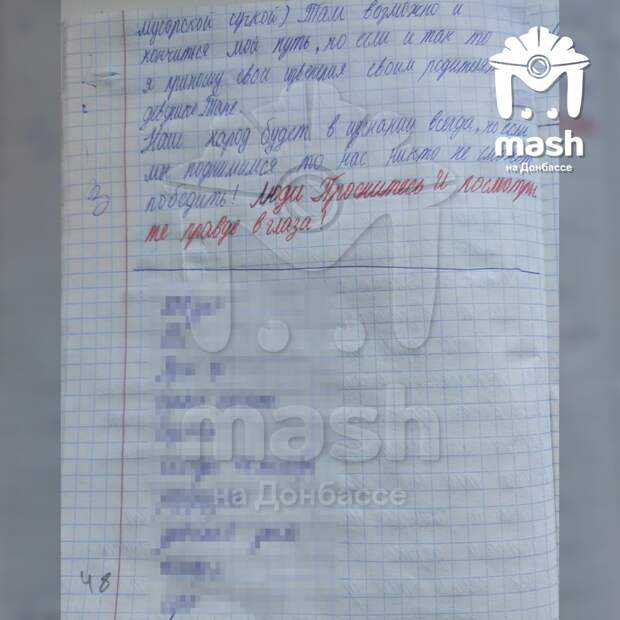 мусорской сучкой) Там возможно и
кончиться мой путь, но если и так то
я приношу свои извенения своим родителям
девушке Тане.
Наш народ будет в изгнании всегда, но если
мы поднимимся то нас никто не сможет
победить! Люди Проснитесь И посмотри
те правде в глаза!
48
mash
на Донбассе
mash
на Донбассе